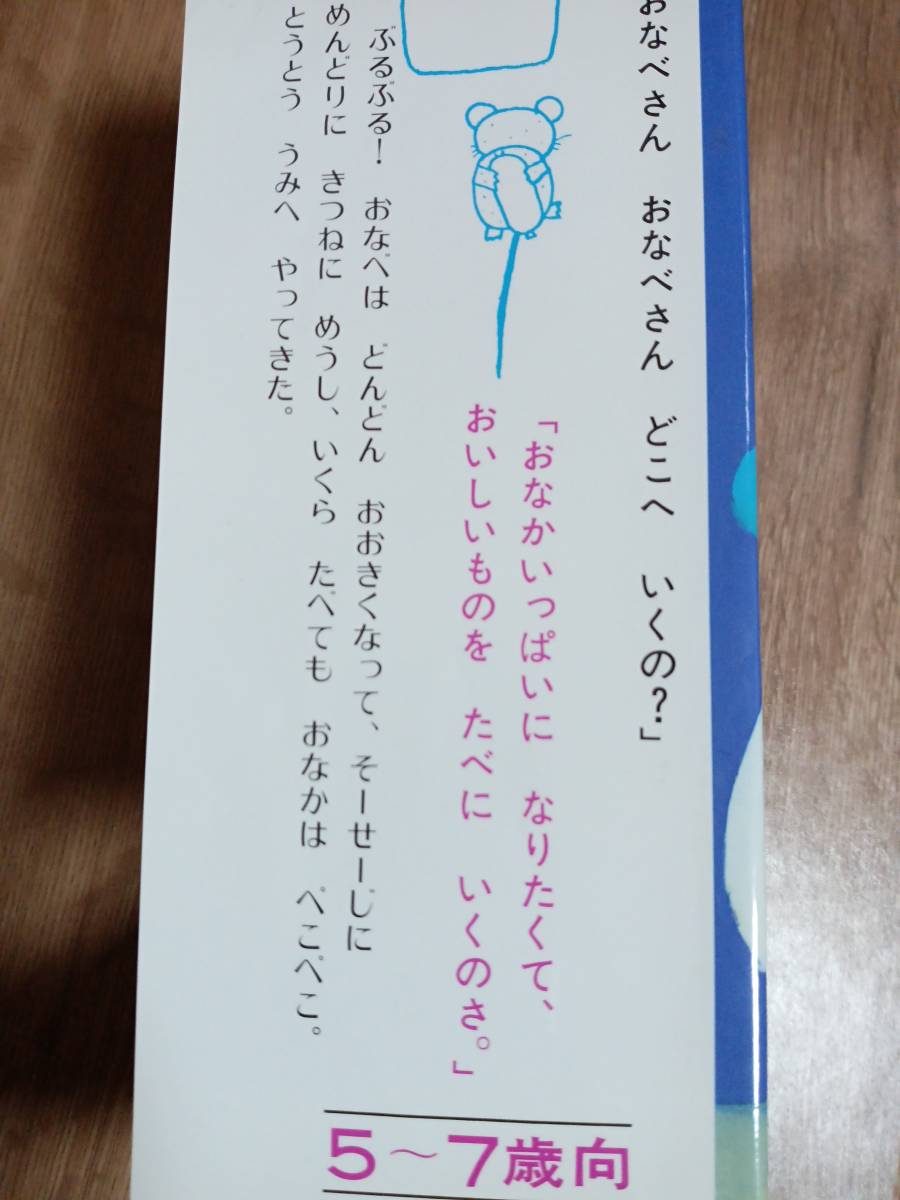 おなべさん おなべさん どこへ いくの?」
「おなかいっぱいに なりたくて、
おいしいものを たべに いくのさ。」
ぶるぶる! おなべは どんどん おおきくなって、そーせーじに
めんどりに きつねに めうし、いくら たべても おなかは ぺこぺこ。
とうとう うみへ やってきた。
5〜7歳向